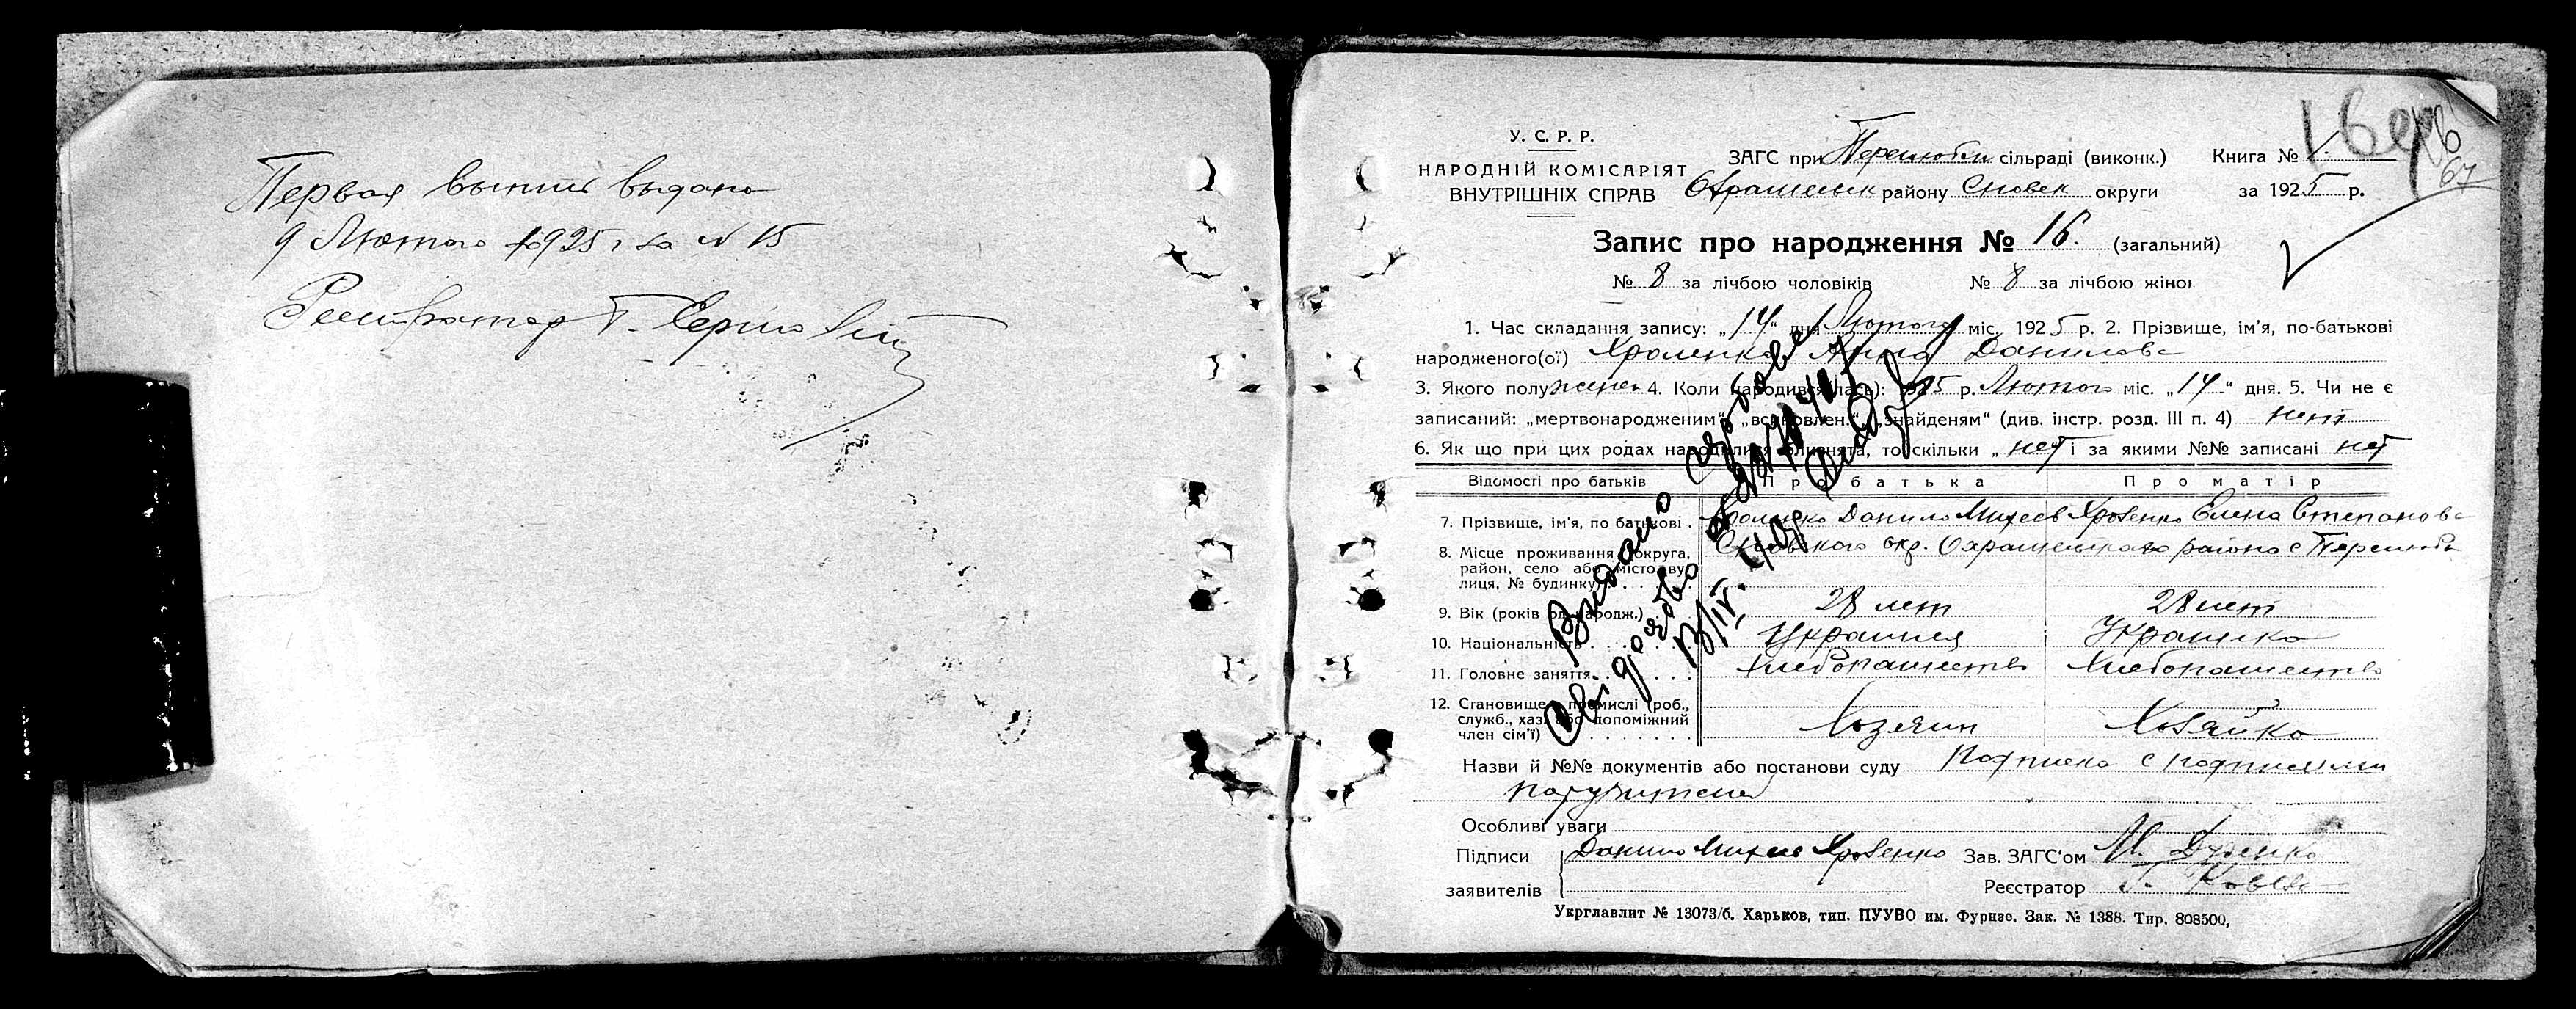 Первая выпись выдана
9 Лютого 1925 г за № 15
Регистратор Г.
У. С. Р. Р.
НАРОДНІЙ КОМІСАРІЯТ
ВНУТРІШНІХ СПРАВ
ЗАГС при Перелюбск сільраді (виконк.)
района Сновск округи
Книга № 1.
за 1925 р.
67
Запис про народження № 16. (загальний)
№ 8 за лічбою чоловіків № 8 за лічбою жінок
1. Час складання запису: „14“ дня Лютого міс. 1925 р. 2. Прізвище, ім’я, по-батькові
народженого(ої) Хроленко Анна Данилова
3. Якого полу женск 4. Коли народився(лась): 1925 р. Лютого міс. „14“ дня. 5. Чи не є
записаний: „мертвонародженим“, „встановлен.“, „знайденям“ (див. інстр. розд. III п. 4) нет
6. Як що при цих родах народилися близнята, то скільки „нет і за якими №№ записані нет
Відомості про батьків Про батька Про матір
7. Прізвище, ім’я, по батькові . Хроленко Данило Михеев Хроленко Елена Степановa
8. Місце проживання (округа, Сновского окр. района с Перелюб
район, село або місто, ву-
лиця, № будинку) . . . .
9. Вік (років од народж.) . 28 лет 28 лет
10. Національність . . . . . Украинец Украинка
11. Головне заняття . . . . . Хлебопашество Хлебопашество
12. Становище в промислі (роб.,
служб., хаз. або допоміжний
член сім’ї) . . . . . . . Хозяин Хозяйка
Назви й №№ документів або постанови суду Подписка с подписями
поручителей
Особливі уваги
Підписи Данило Михеев Хроленко Зав. ЗАГС’ом
заявителів Реєстратор Г.
Укрглавлит № 13073/б. Харьков, тип. ПУУВО им. Фрунзе. Зак. № 1388. Тир. 808500,
Видано
свідоцтво